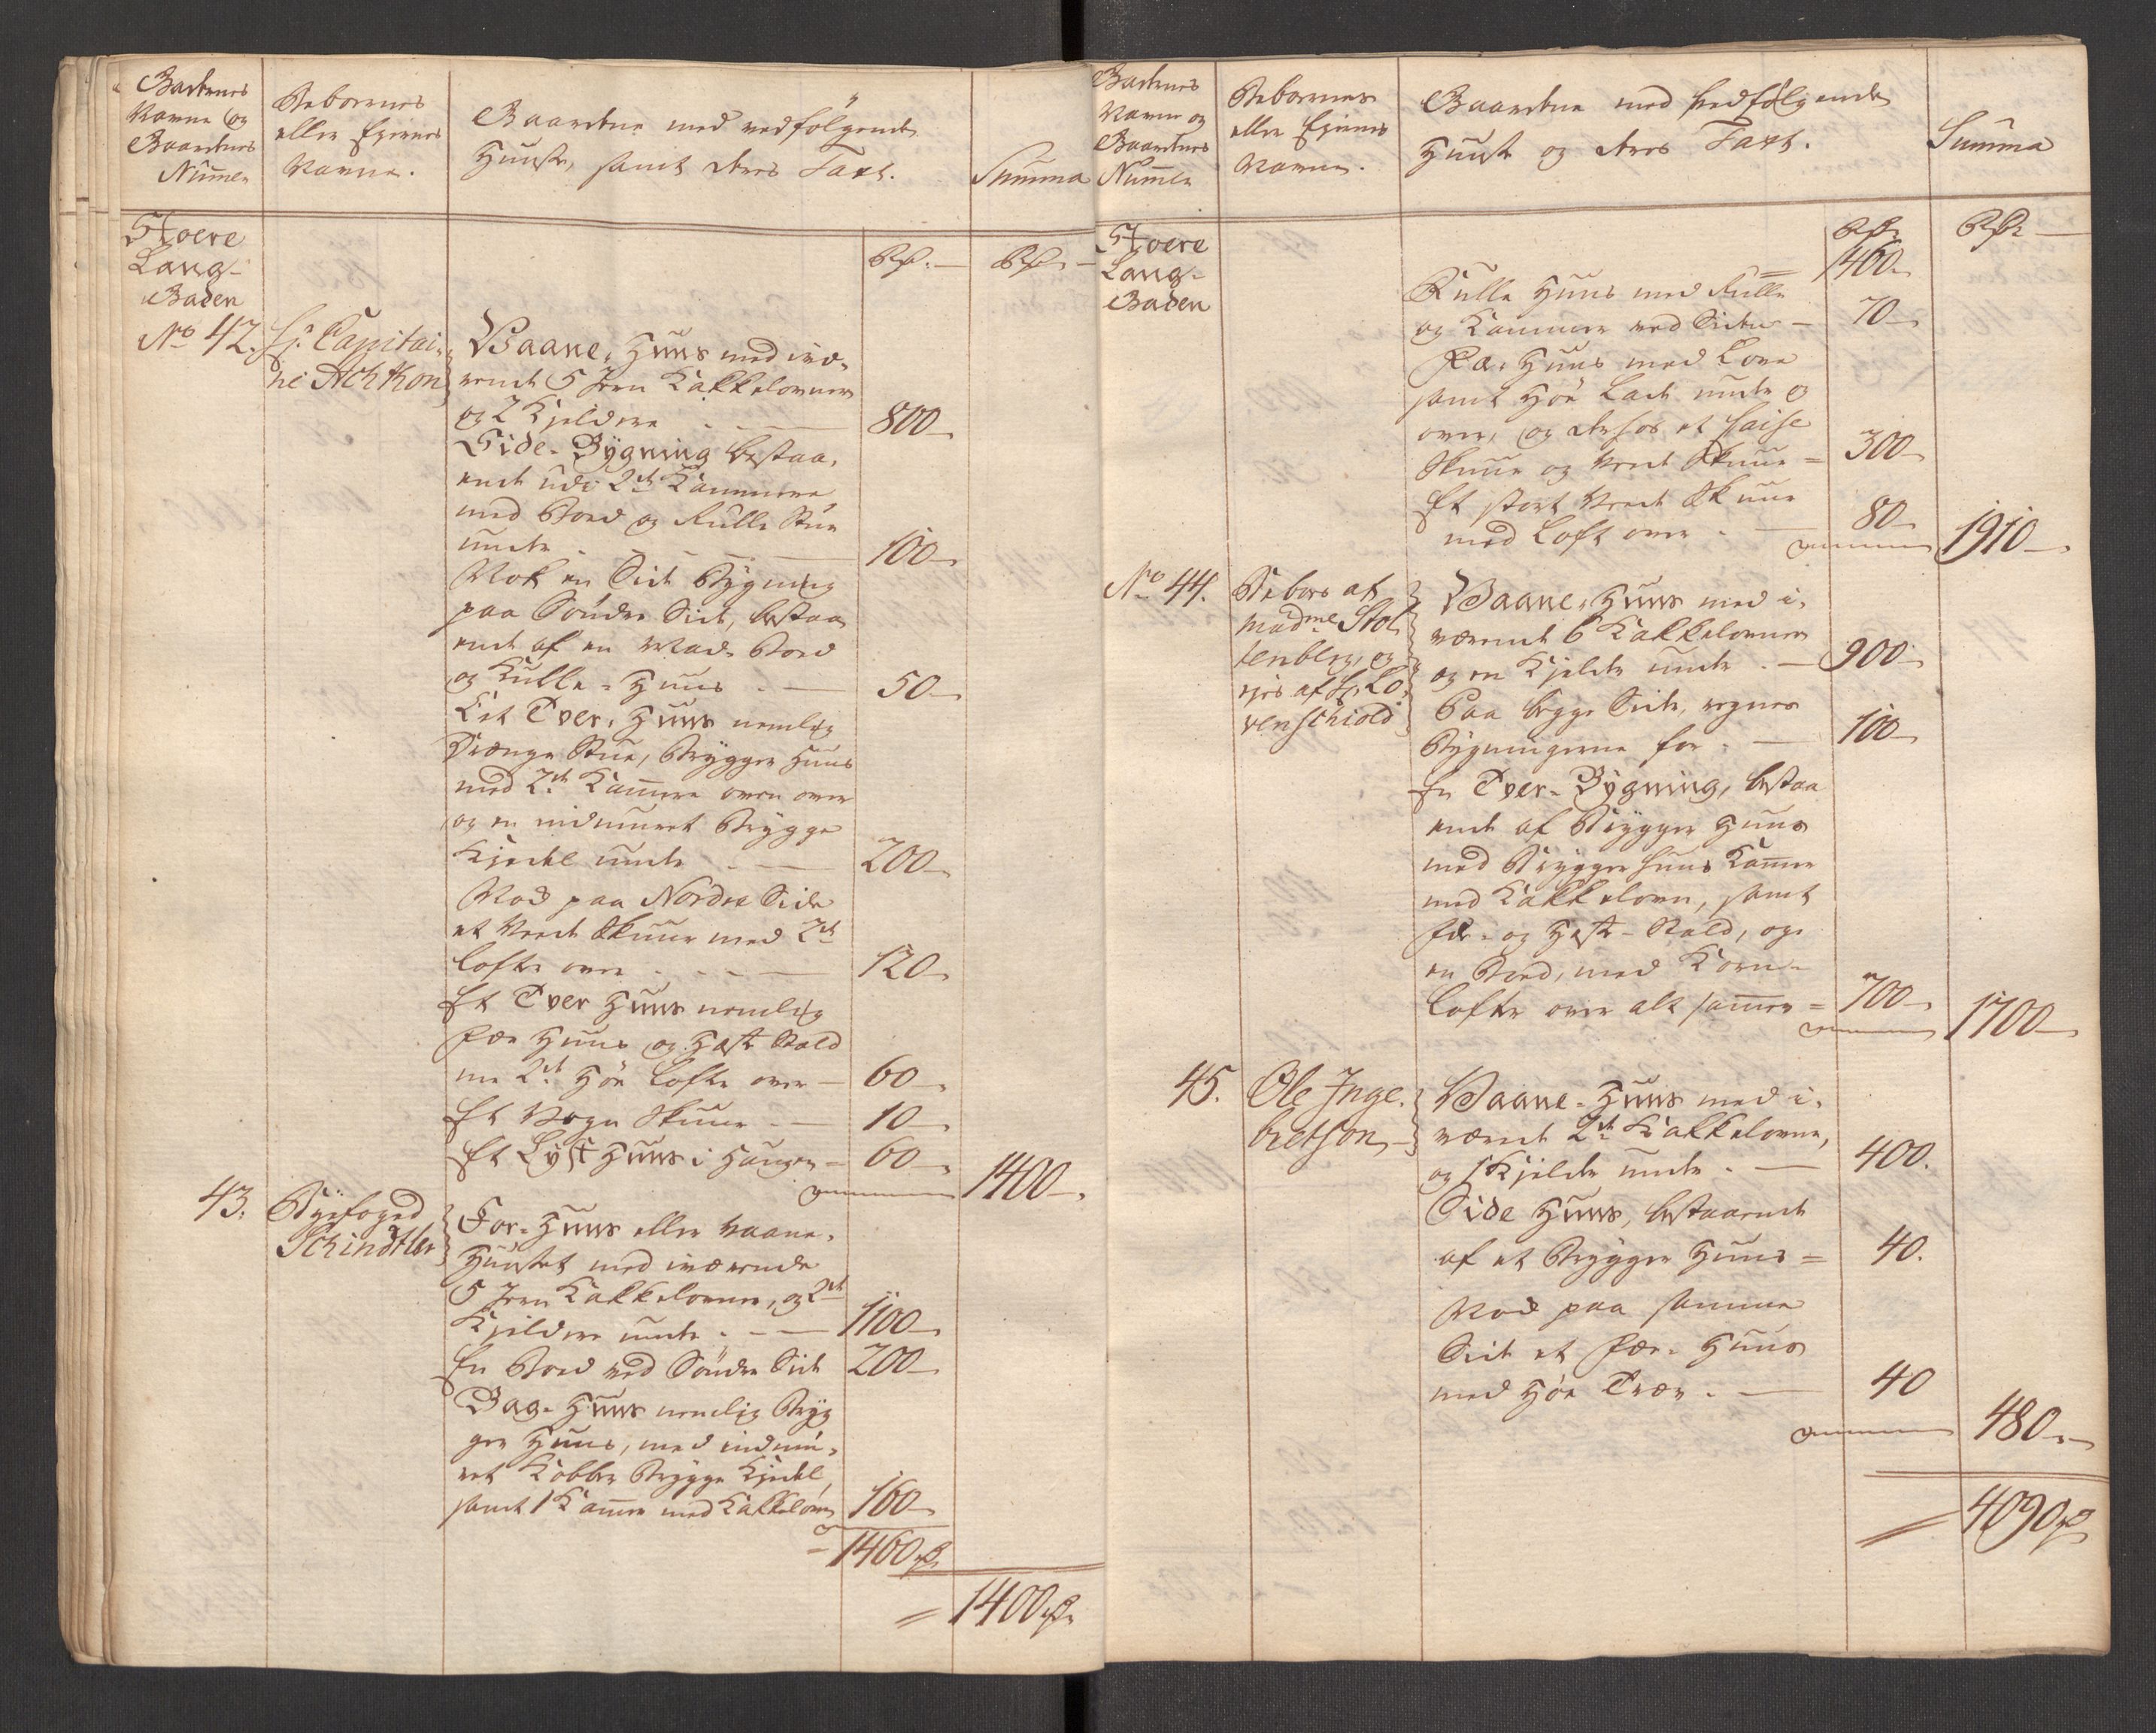 Gadernes
Navne og
Gaardenes
Numer
Beboernes
eller Eiernes
Navne.
Gaardene med vedfølgende
Huuse, samt deres Taxt.
Summa
Stoere
Lang-
Gaden
No 42.
Hr. Capitai-
ne Achthon
Rdr.
Rdr.
Vaane-Huus med ivæ-
rende 5 Jern Kakkelovner
og 2 Kjeldere 800
Side-Bygning bestaa-
ende udi 2de Kammere
med Boed og Rulle Stue
under 100
Nok en Side Bygning
paa Søndre Side, bestaa
ende af en Mad-Boed
og Rulle-Huus 50
Lit Tver-Huus nemlig
Drænge Stue, Brygger Huus
med 2de Kamere oven over
og en indmuret Brygge
Kjedel under 200
Nod paa Nordre Side
et Veede Skuur med 2de
Lofte over 120
Et Tver Huus nemlig
Fæe Huus og Heste Stald
med 2de Høe Lofte over 60
Et Vogn Skuur 10
Et Lyst Huus i Haugen 60
1400
43.
Byefoged
Schindtler
For-Huus eller Vaane-
Huuset med iværende
5 Jern Kakkelovner, og 2de
Kjeldere under 1100
En Boed ved Søndre Side 200
Bag-Huus nemlig Bryg
ger Huus, med indmu-
ret Kobber Brygge Kjedel,
samt 1 Kamer med Kakkelovn 160
1460 rd
1400 rd
Gadernes
Navne og
Gaardenes
Numer
Beboernes
eller Eiernes
Navne.
Gaardene med vedfølgende
Huuse og deres Taxt.
Summa
Stoere
Lang-
Gaden
Rdr.
1460
Rdr
Rulle Huus med Rulle
og Kammer ved Siden 70
Fæ-Huus med Love
samt Høe Lade under og
over, og dehos et Chaise
Skuur og Veede Skuur 300
Et stort Veede Skuur
med Loft over 80
1910
No 44.
Beboes af
Madme Stol
tenberg, og
ejes af Hr. Lø-
venschiold
Vaane-Huus med i-
værende 6 Kakkelovner
og en Kjelder under 900
Paa begge Sider, regnes
Bygningerne for 100
En Tver-Bygning, bestaa
ende af Brygger Huus
med Bryggerhuus Kamer
med Kakkelovn, samt
Fæe- og Heste-Stald, og
en Boed, med Korn-
Lofter over alt samen 700
1700
45.
Ole Inge-
bretson
Vaane-Huus med i-
værende 2de Kakkelovne,
og 1 Kjelder under 400.
Side Huus, bestaaende
af et Brygger Huus 40.
Nod paa samme
Side et Fæe-Huus
med Høe Træv 40
480
4090 rd